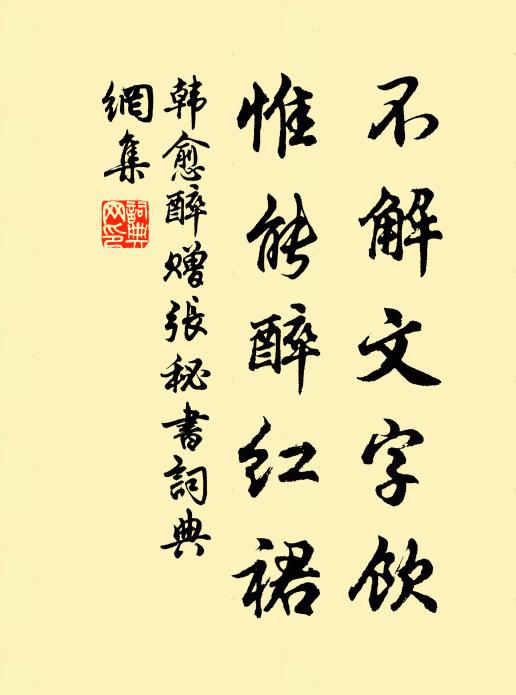 不解文字饮
惟能醉红裙
韩愈醉赠张秘書詞典
網集
詞典網印